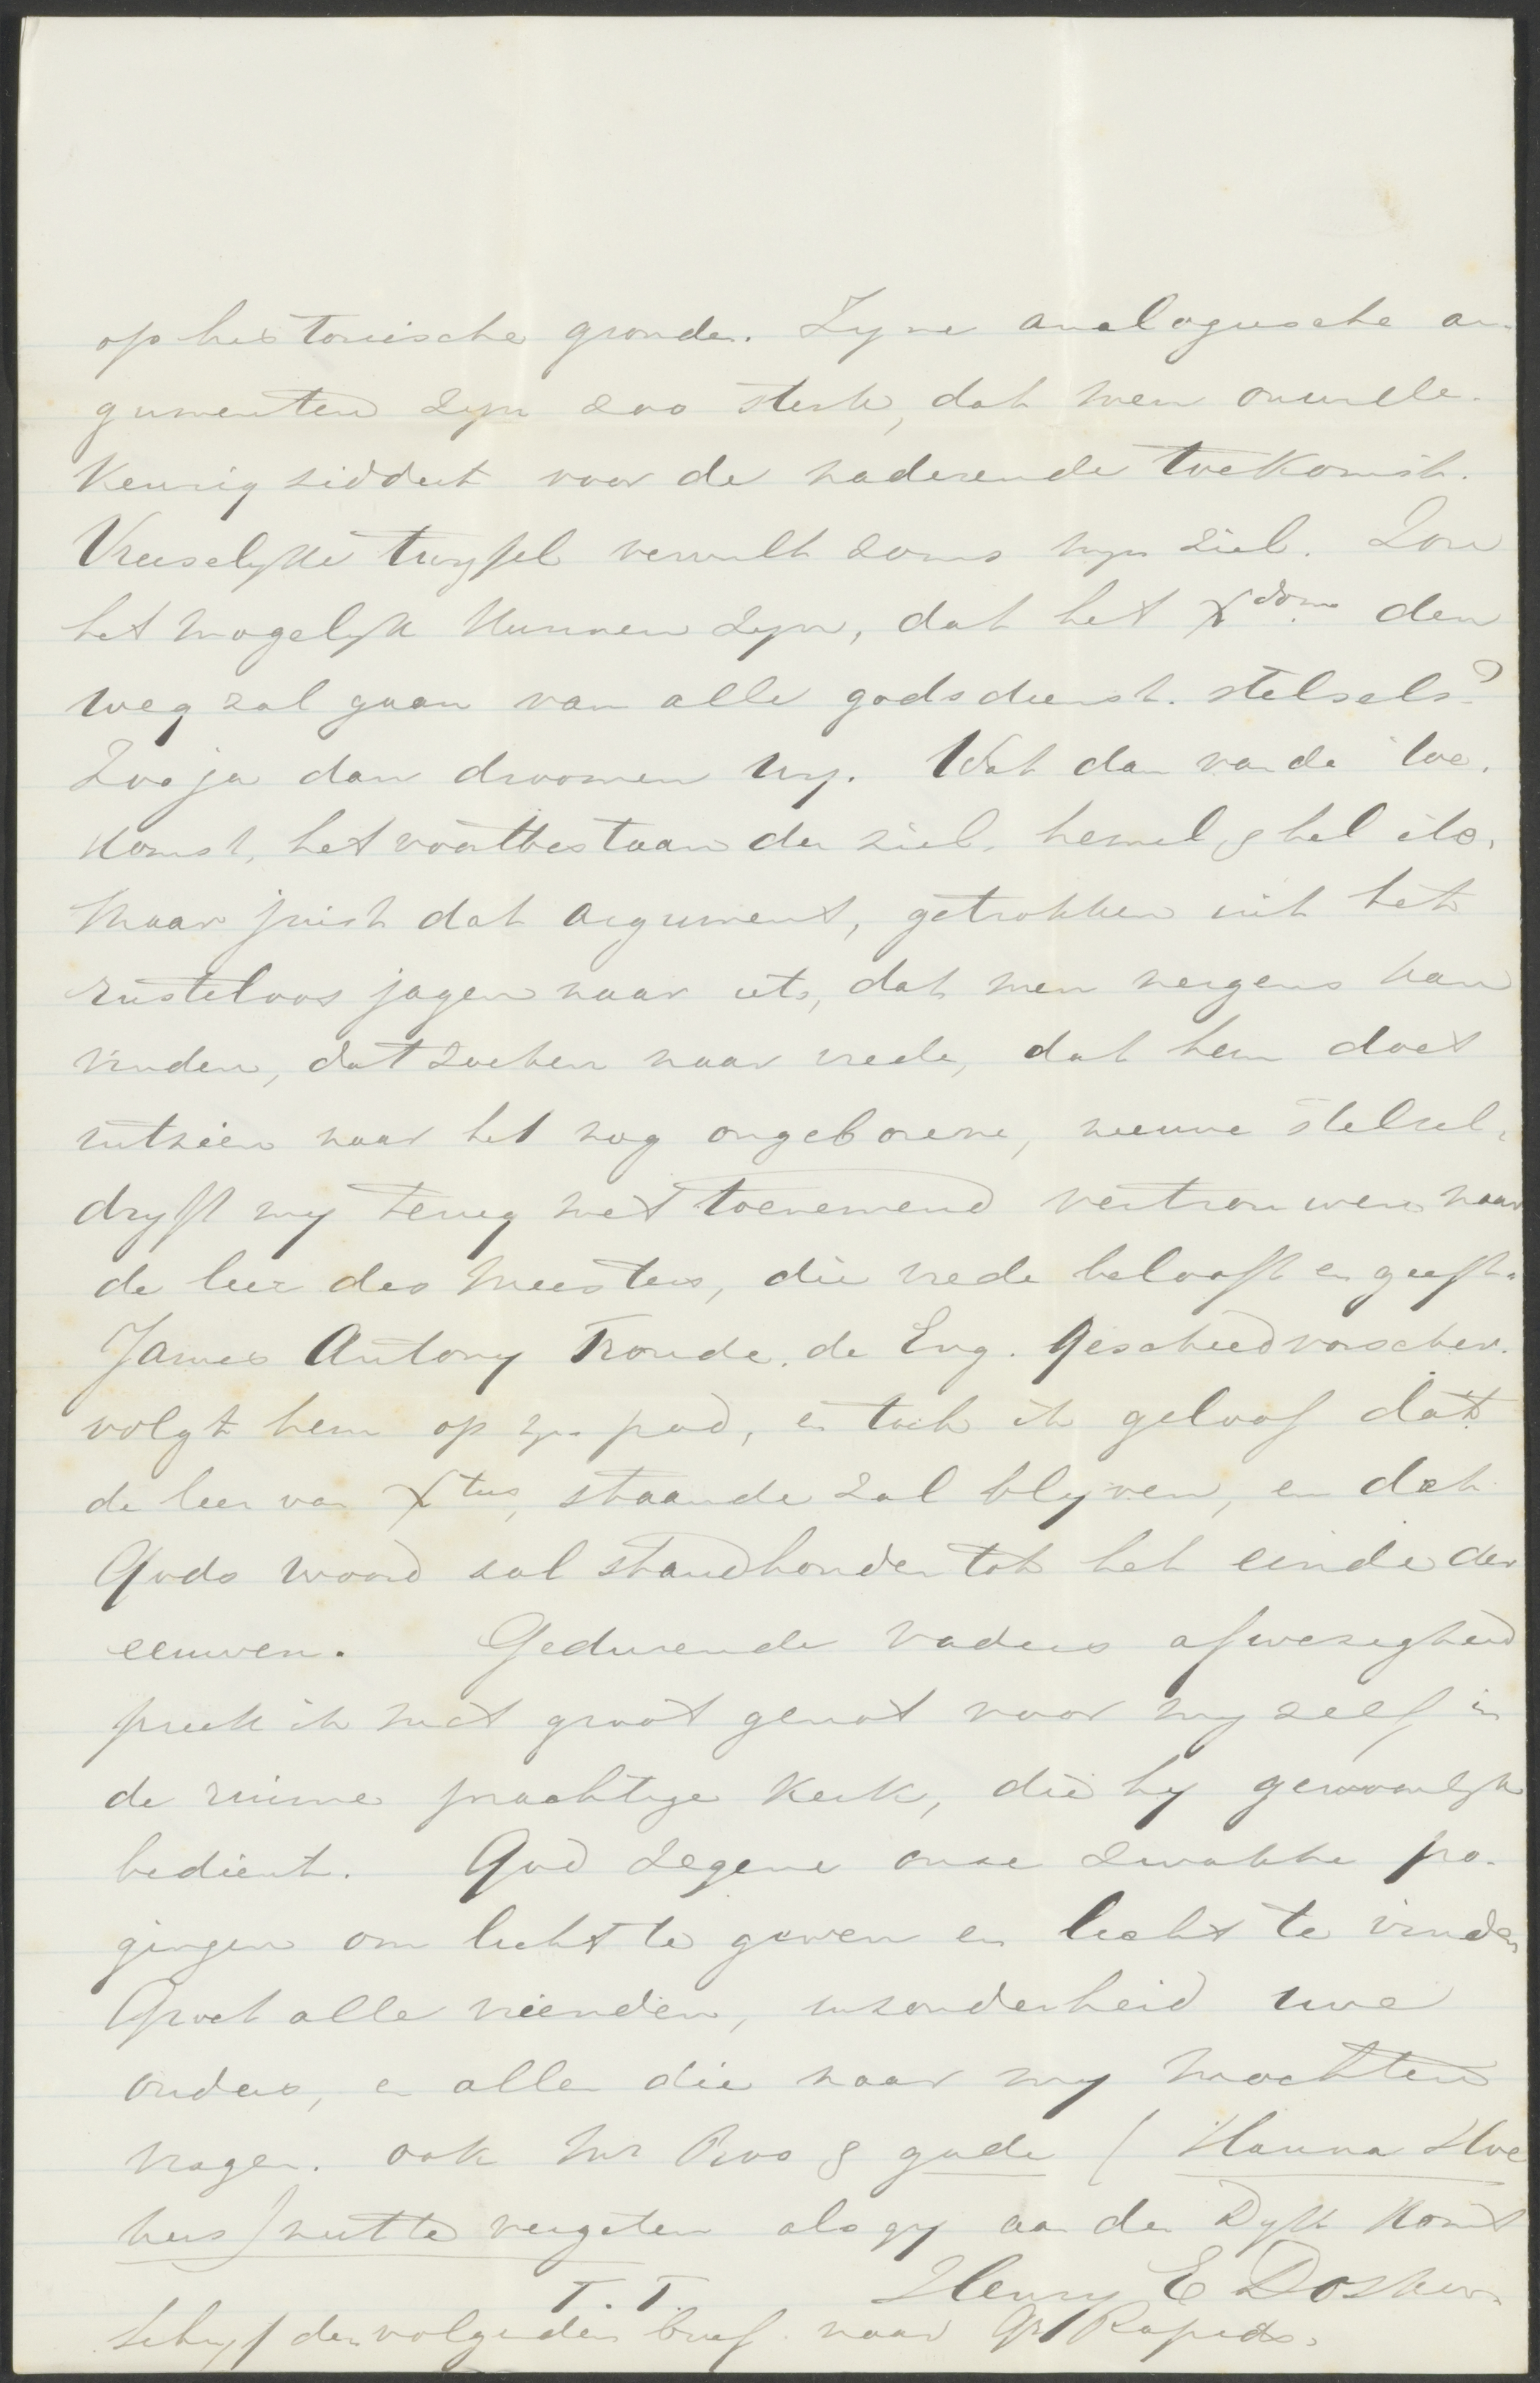 op historische gronden. Zyne analogische ar-
gumenten zyn zoo sterk, dat men onwille-
keurig siddert voor de naderende toekomst.
Vreeselyke twyfel vervult soms myn ziel. Zou
het mogelyk kunnen zyn, dat het Xdom. den
weg zal gaan van alle godsdienst. stelsels?
Zoo ja dan droomen wy. Wat dan van de toe-
komst, het voortbestaan der ziel, hemel, & hel etc.
Maar juist dat argument, getrokken uit het
rusteloos jagen naar iets, dat men nergens kan
vinden, dat zoeken naar vrede, dat hem doet
uitzien naar het nog ongeborene, nieuwe stelsel,
dryft my terug met toenemend vertrouwen naar
de leer des Meesters, die vrede belooft en geeft.
James Antony Froude, de Eng. Geschiedvorscher.
volgt hem op zyn pad, en toch ik geloof dat
de leer van Xtus, staande zal blyven, en dat
Gods woord zal standhouden tot het einde der
eeuwen. Gedurende vaders afwezigheid
preek ik met groot genot voor myzelf in
de ruime prachtige kerk, die hy gewoonlyk
bedient. God zegene onze zwakke po-
gingen om licht te geven en licht te vinden
Groet alle vrienden, inzonderheid uwe
ouders, en allen die naar my mochten
vragen. ook Mr Roos & gade (Hanna Hoe
kers) niet te vergeten als gy aan den Dyk komt
T. T. Henry E Dosker.
Schryf den volgenden brief naar Gr Rapids.